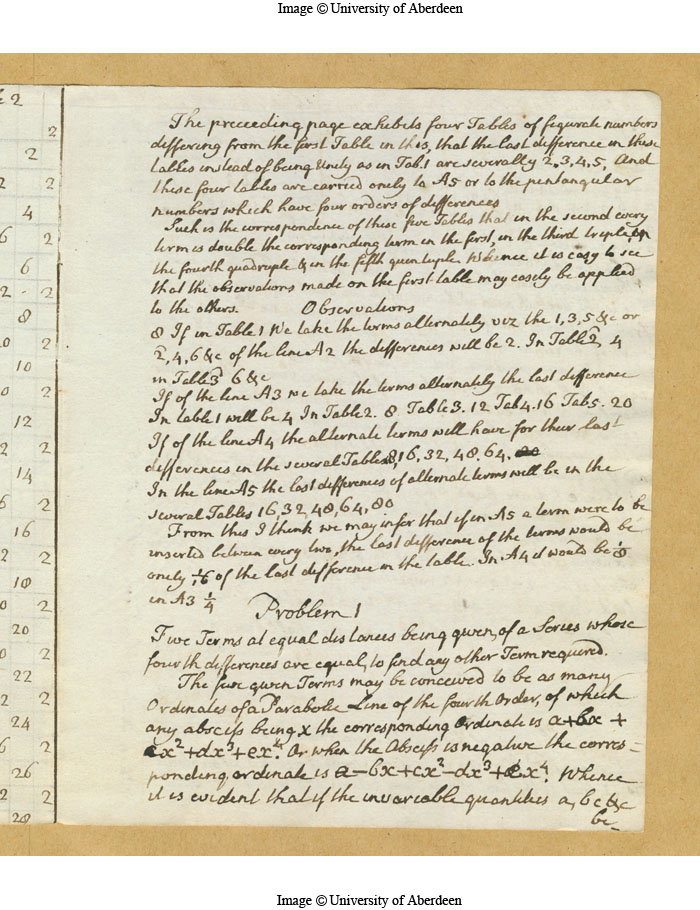 Image © University of Aberdeen
The preceeding page exhibits four Tables of figurate numbers
differing from the first Table in this, that the last difference in these
tables instead of being Unity as in Tab.1 are severally 2.3,4,5, And
these four tables are carried onely to A5 or to the pentangular
numbers which have four orders of differences
Such is the correspondence of these five Tables that in the second every
term is double the corresponding term in the first, in the third triple, in
the fourth quadruple & in the fifth quintuple. Whence it is easy to see
that the observations made on the first table may easely be applied
to the others. Observations
8 If in Table 1 We take the terms alternately viz the 1, 3, 5 &c or
2, 4, 6 &c of the line A2 the differences will be 2. In Table 2, 4
in Table 3 6 &c
If of the line A3 we take the terms alternately the last difference
In table 1 will be 4 In Table 2. 8 Table 3. 12 Tab 4. 16 Tab 5. 20
If of the line A4 the alternate terms will have for their last
differences in the several Tables 8, 16, 32, 48. 64.
In the line A5 the last differences of alternate terms will be in the
several Tables 16, 32, 48, 64, 80
From this I think we may infer that if in A5 a term were to be
inserted between every two, the last difference of the terms would be
onely 1/16 of the last difference in the table. In A4 it would be 1/8
in A3 1/4
Problem 1
Five Terms at equal distances being given, of a Series whose
fourth differences are equal, to find any other Term required.
The five given Terms may be conceived to be as many
Ordinates of a Parabolic Line of the fourth Order, of which
any absciss being x the corresponding Ordinate is a+bx+
cx²+dx³+ex⁴. Or when the Absciss is negative the corres=
ponding ordinate is a-bx+cx²-dx³+ex⁴. Whence
it is evident that if the invariable quantities a, b c &c
be
2
2
2
2
2
4
6
2
6
2
2
8
0
2
10
0
2
12
2
2
14
6
2
16
2
2
18
0
2
20
0
2
22
2
2
24
6
2
26
2
2
28
Image © University of Aberdeen